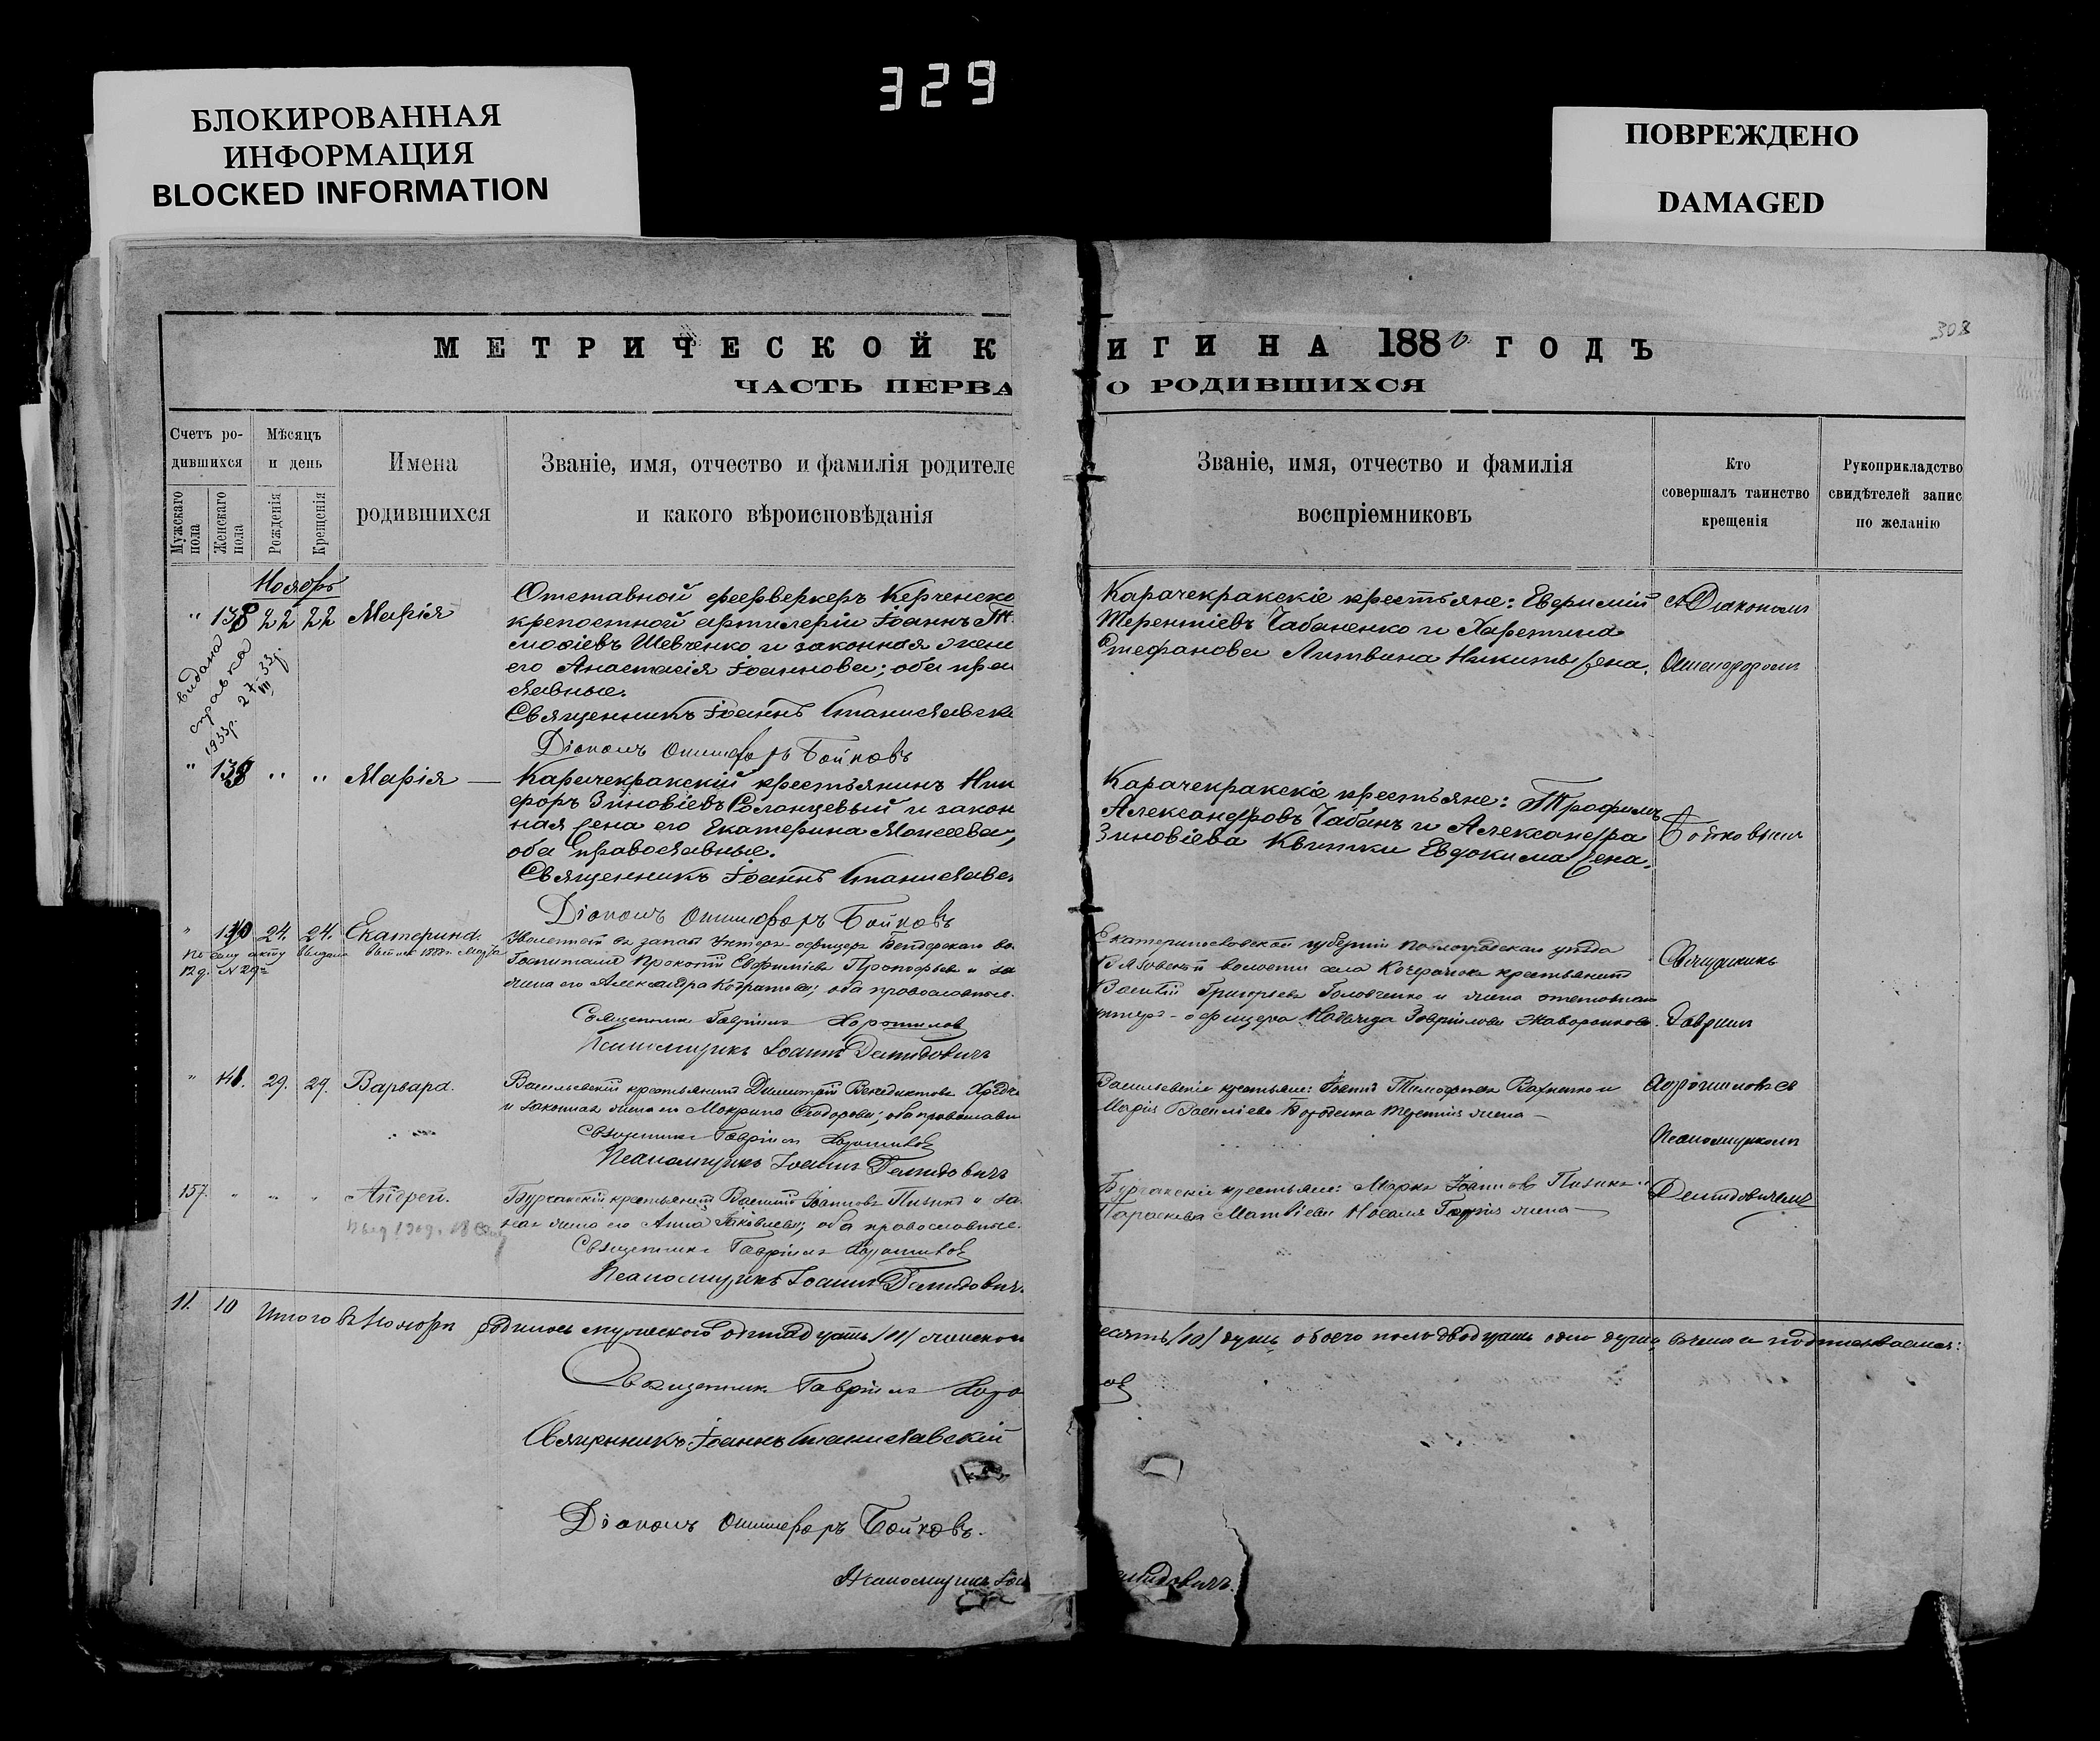 329
БЛОКИРОВАННАЯ
ИНФОРМАЦИЯ
BLOCKED INFORMATION
ПОВРЕЖДЕНО
DAMAGED
308
МЕТРИЧЕСКОЙ К
ИГИ НА 188 ГОДЪ
ЧАСТЬ ПЕРВА
О РОДИВШИХСЯ
Счетъ ро-
дившихся
Мужскаго пола
Женскаго пола
Мѣсяцъ
и день
Рожденія
Крещенія
Имена
родившихся
Званіе, имя, отчество и фамилія родителе
и какого вѣроисповѣданія
Званіе, имя, отчество и фамилія
воспріемниковъ
Кто
совершалъ таинство
крещенія
Рукоприкладство
свидѣтелей запис
по желанію
Ноябрь
" 138 22 22 Марія
Отставной фейерверкеръ Керченско
крепостной артилеріи Іоаннъ Ти
мофіевъ Шевченко и законная жена
его Анастасія Іоаннова; оба прав
славные.
Священникъ Іоаннъ Станиславск
Діаконъ Онисифоръ Бойковъ
Карачекракскіе крестьяне: Евфимій
Терентіевъ Чабаненко и Харетина
Стефанова Литвина Никиты жена.
Діакономъ
видана
справка
1933р. 27-33р.
" " " Марія
Карачекракскій крестьянинъ Ник
форъ Зиновіевъ и закон
ная жена его Екатерина Моисеева;
оба православные.
Священникъ Іоаннъ Станиславс
Діаконъ Онисифоръ Бойковъ
Карачекракскіе крестьяне: Трофимъ
Александровъ Чабанъ и Александра
Зиновіева Квитки Евдокима жена.
Бойковымъ
" 140 24. 24. Екатерина.
Уволенный въ запасъ унтеръ-офицеръ Бендерскаго во
Госпиталя Прокопій Евфиміевъ Прокофьевъ и за
жена его Александра; оба православные.
Священникъ Гавріилъ Хорошиловъ
Псаломщикъ Іоаннъ Демидовичъ
Екатеринославской губерніи Павлоградскаго уѣзда
волости села крестьянинъ
Василій Григорьевъ Головченко и жена отставнаго
унтеръ-офицера Надежда Гавріилова
Священникъ
Гавріилъ
" 141. 29. 29. Варвара.
Васильевскій крестьянинъ Димитрій Венедиктовъ
и законная жена его Макрина Феодорова; оба православн
Священникъ Гавріилъ Хорошиловъ
Псаломщикъ Іоаннъ Демидовичъ
Васильевскіе крестьяне: Іоаннъ Тимофеевъ и
Марія Василіева Терентія жена
Хорошиловъ съ
Псаломщикомъ
157. " " " Андрей.
Бурчакскій крестьянинъ Василій Іоанновъ и за
ная жена его Анна Іаковлева; оба православные.
Священникъ Гавріилъ Хорошиловъ
Псаломщикъ Іоаннъ Демидовичъ
Бурчакскіе крестьяне: Марко Іоанновъ и
Параскева Матвіева Георгія жена
Демидовичемъ
11. 10 Итого въ Ноябрѣ родилось мужескаго одинадцать /11/ женскаго
есять /10/ душъ обоего пола двадцать одна душа,
Священникъ Гавріилъ Хоро
ов
Священникъ Іоаннъ Станиславскій
Діаконъ Онисифоръ Бойковъ.
Псаломщикъ Іоа
емидовичъ.